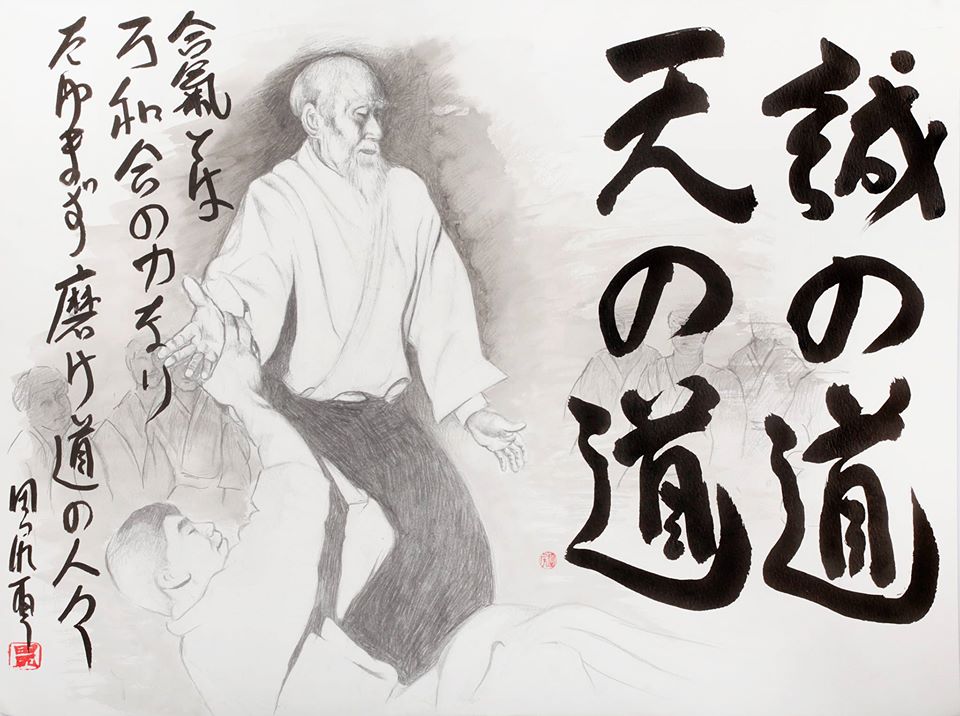 誠の道
天の道
合氣とは
万和合の力なり
たゆまず磨け道の人々